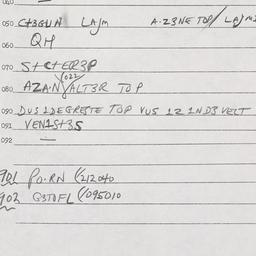 040 —
050 C+3GUN LAJM A.Z3NE TOP/ LAJM
060 QH
070 S+C+ER3P
080 AZAIN/022/ALT3R TOP
090 DUS 1DEGRESTE TOP VUS 1Z 1ND3 VELT
091 VEN1S+3S
092 —
901 PO.RN (/212040
902 G3TOFL (/095010